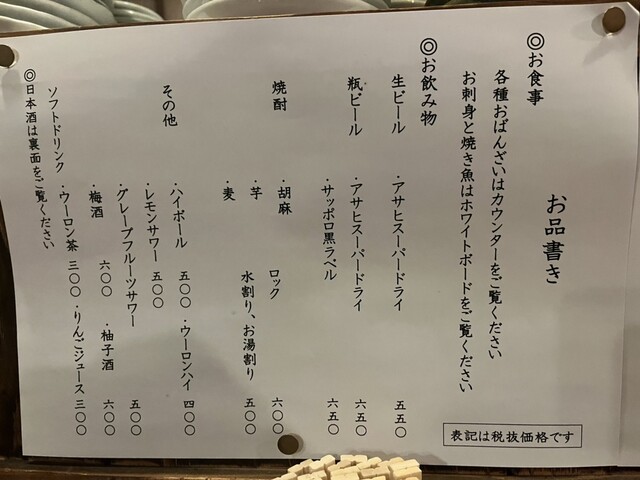 お品書き
◎お食事
各種おばんざいはカウンターをご覧ください
お刺身と焼き魚はホワイトボードをご覧ください
◎お飲み物
生ビール ・アサヒスーパードライ 五五〇
瓶ビール ・アサヒスーパードライ 六五〇
・サッポロ黒ラベル 六五〇
焼酎 ・胡麻 ロック 六〇〇
・芋 水割り、お湯割り 五〇〇
・麦
その他 ・ハイボール 五〇〇 ・ウーロンハイ 四〇〇
・レモンサワー 五〇〇
・グレープフルーツサワー 五〇〇
・梅酒 六〇〇 ・柚子酒 六〇〇
ソフトドリンク ・ウーロン茶 三〇〇 ・りんごジュース 三〇〇
◎日本酒は裏面をご覧ください
表記は税抜価格です